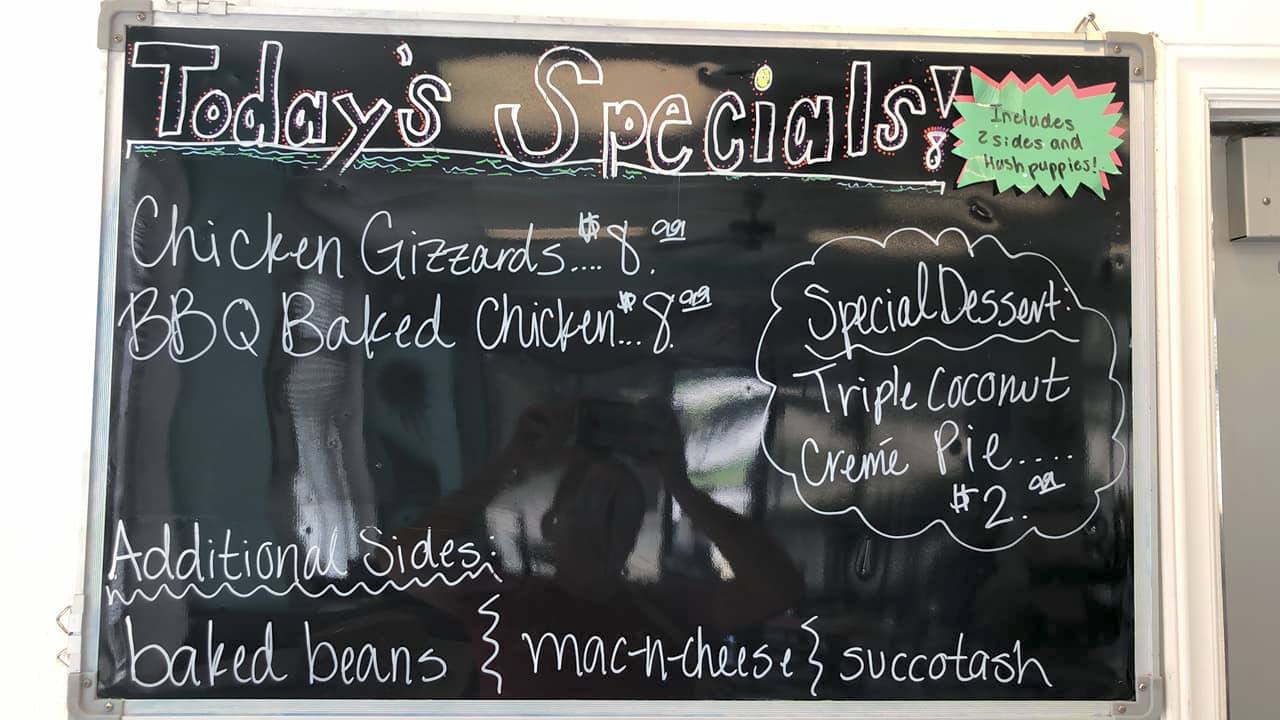 Today's Specials!
Includes
2 sides and
Hush puppies!
Chicken Gizzards....$8.99
BBQ Baked Chicken...$8.99
Special Dessert:
Triple Coconut
Cremé Pie....
$2.99
Additional Sides:
baked beans } mac-n-cheese } succotash